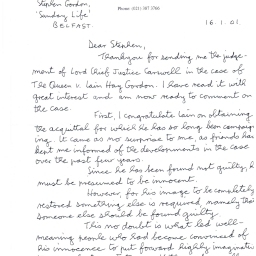 Stephen Gordon,
'Sunday Life'
BELFAST
Phone: (021) 387 3766
16.1.01
Dear Stephen,
Thank you for sending me the judge-
ment of Lord Chief Justice Carswell in the case of
The Queen v. Iain Hay Gordon. I have read it with
great interest and am now ready to comment on
the case.
First, I congratulate Iain on obtaining
the acquittal for which he has so long been campaign-
ing. It came as no surprise to me, as friends have
kept me informed of the developments in the case
over the past few years.
Since he has been found not guilty, he
must be presumed to be innocent.
However, for his image to be completely
restored something else is required, namely that
someone else should be found guilty.
This no doubt is what led well-
meaning people who had become convinced of
his innocence to put forward highly imaginative